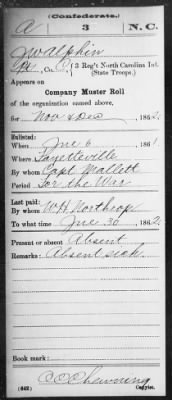 (Confederate.)
A 3 N.C.
J W Alphin
Co. C, 3 Reg't North Carolina Inf.
(State Troops.)
Appears on
Company Muster Roll
of the organization named above,
for Nov & Dec, 1862.
Enlisted:
When June 6, 1861.
Where Fayetteville
By whom Capt Mallett
Period For the War
Last paid:
By whom W H Northrop
To what time June 30, 1862.
Present or absent Absent
Remarks: Absent sick.
Book mark:
(642) C C Chewning
Copyist.